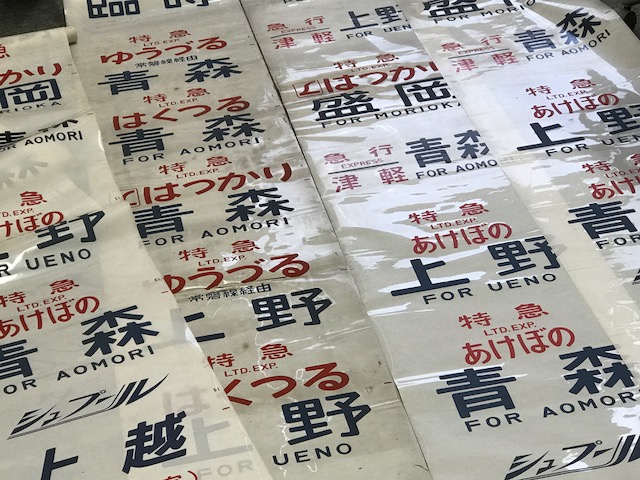 岡
MORIOKA
AOMORI
特急
LTD.EXP.
あけぼの
上野
FOR UENO
特急
LTD.EXP.
あけぼの
青森
FOR AOMORI
シュプール
上越
臨時
特急
LTD.EXP.
ゆうづる
常磐線経由
青森
特急
LTD.EXP.
はくつる
青森
FOR AOMORI
特急
LTD.EXP.
はつかり
青森
FOR AOMORI
特急
LTD.EXP.
ゆうづる
常磐線経由
上野
特急
LTD.EXP.
はくつる
野
UENO
急行
EXPRESS
津軽
上野
FOR UENO
特急
LTD.EXP.
はつかり
盛岡
FOR MORIOKA
急行
EXPRESS
津軽
青森
FOR AOMORI
特急
LTD.EXP.
あけぼの
上野
FOR UENO
特急
LTD.EXP.
あけぼの
青森
FOR AOMORI
シュプール
盛岡
FOR MORIOKA
急行
EXPRESS
津軽
青森
FOR AOMORI
特急
LTD.EXP.
あけぼの
上野
FOR UENO
特急
LTD.EXP.
あけぼの
青
FOR AOMORI